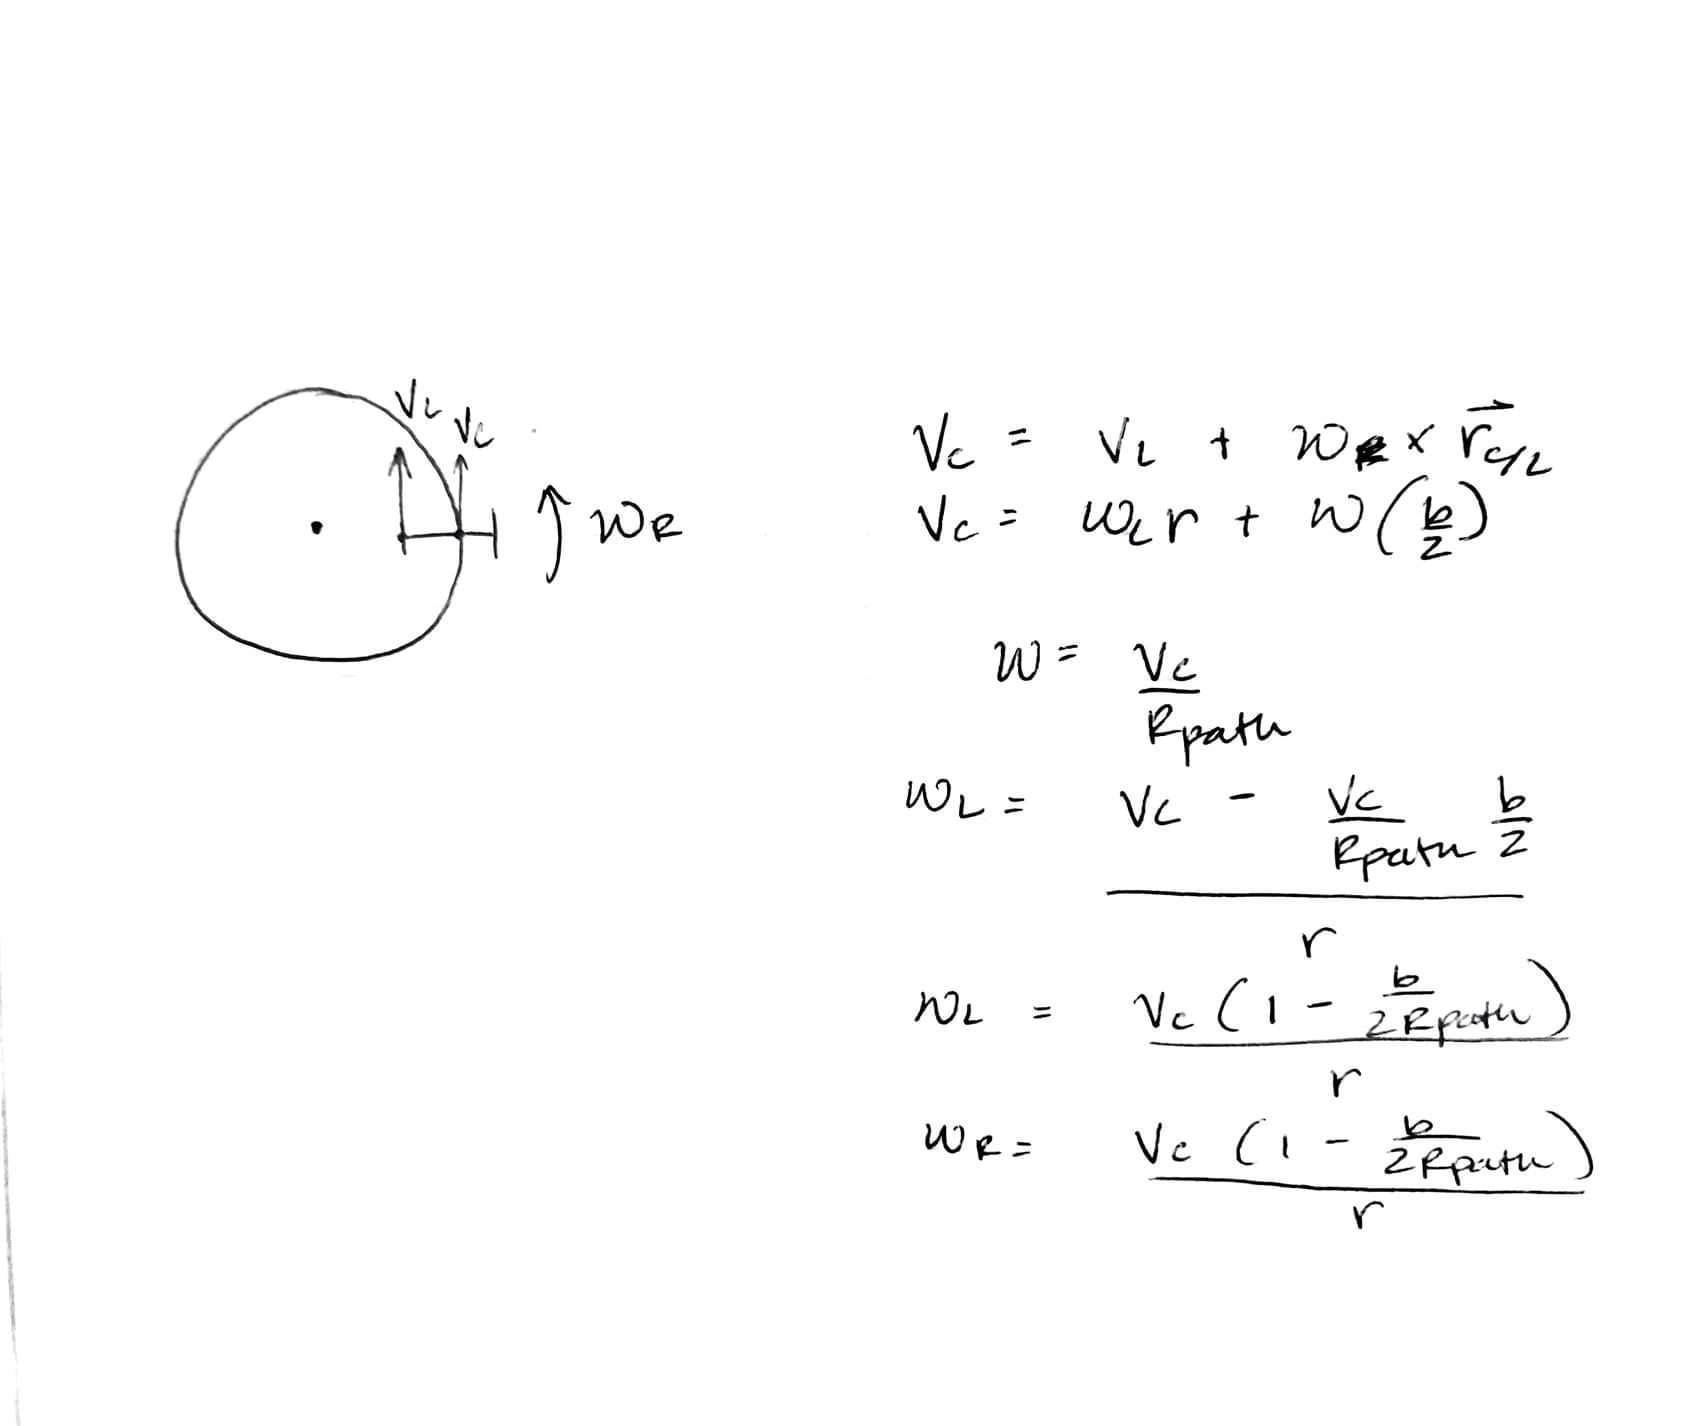 V_L
V_C
W_R
V_C = V_L + W × r⃗_C/L
V_C = W_L r + W (b/2)
W = V_C / R_path
W_L = (V_C - V_C/R_path b/2) / r
W_L = V_C (1 - b/2R_path) / r
W_R = V_C (1 - b/2R_path) / r